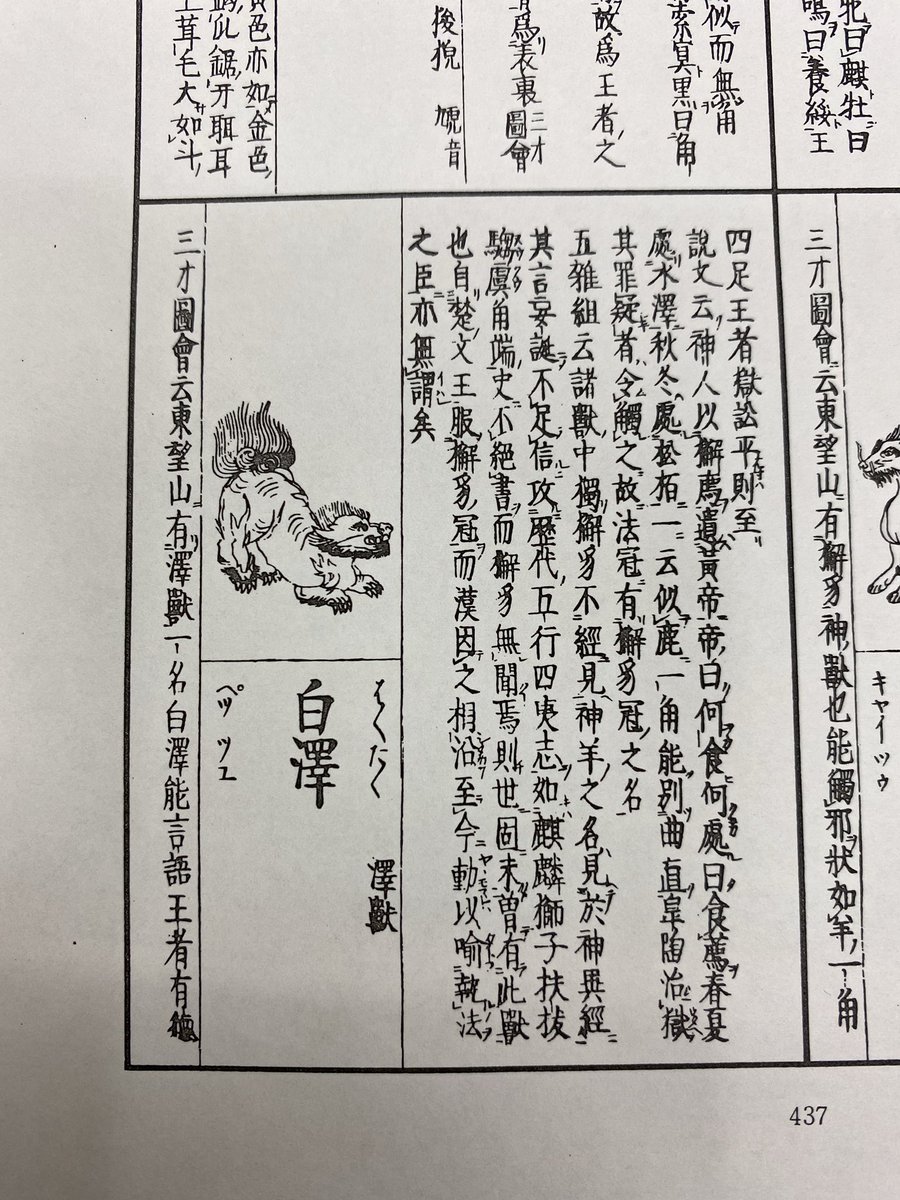 牝曰麒牡曰
鳴曰養綏王
似而無角
眞黒曰角
故爲王者之
爲表裏三才
圖會
狻猊 猊音
黄色亦如金色
鋸牙耼耳
茸毛大如斗
三才圖會云東望山有獬豸神獸也能觸邪狀如羊一角
キヤイツゥ
四足王者獄訟平則至
説文云神人以獬廌遺黄帝帝曰何食何處曰食薦春夏
處水澤秋冬處松栢一云似鹿一角能別曲直皐陶治獄
其罪疑者令觸之故法冠有獬豸冠之名
五雜組云諸獸中獨獬豸不經見神羊之名見於神異經
其言妄誕不足信攻歷代五行四夷志如麒麟獅子扶拔
騶虞角端史不絕書而獬豸無聞焉則世固未曽有此獸
也自楚文王服獬豸冠而漢因之相沿至今動以喻執法
之臣亦無謂矣
はくたく
澤獸
白澤
ペッ ツエ
三才圖會云東望山有澤獸一名白澤能言語王者有德
437